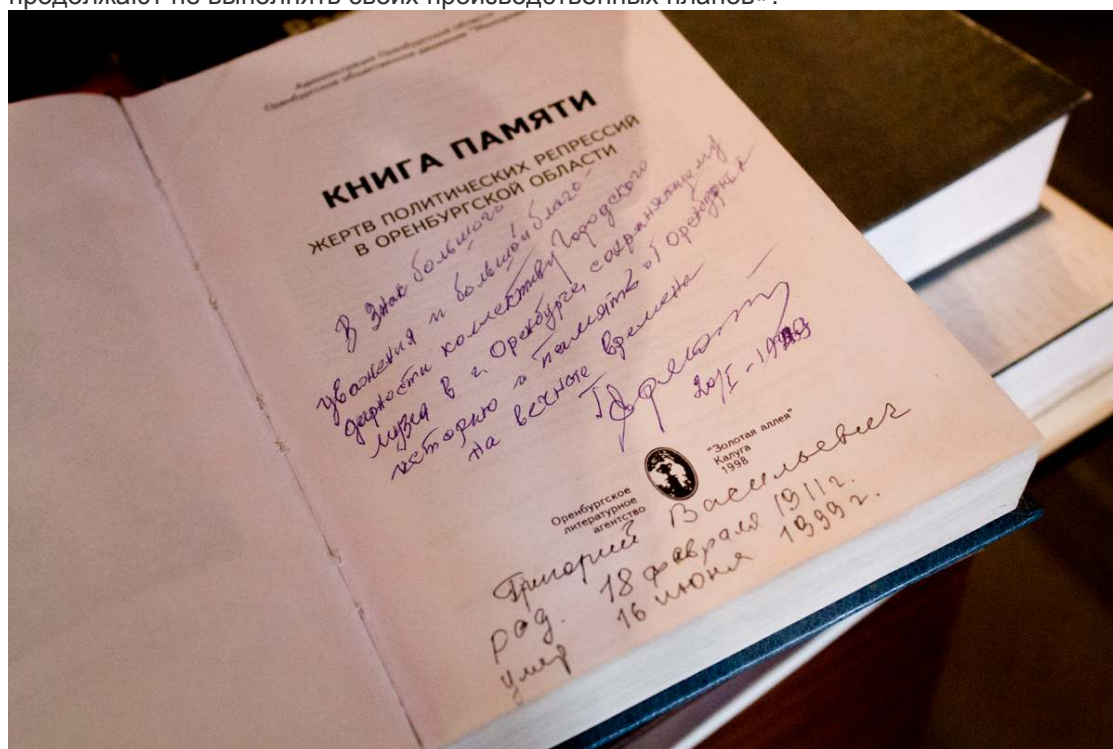 продолжают не выполнять своих производственных планов».
Администрация Оренбургской области
Оренбургское общественное движение
КНИГА ПАМЯТИ
ЖЕРТВ ПОЛИТИЧЕСКИХ РЕПРЕССИЙ
В ОРЕНБУРГСКОЙ ОБЛАСТИ
В Знак большого
уважения и большой благо-
дарности коллективу Городского
музея в г. Оренбурге, сохраняющему
историю и память об Оренбуржья
на вечные времена
20/I - 1999
Оренбургское
литературное
агентство
"Золотая аллея"
Калуга
1998
Григорий Васильевич
род. 18 февраля 1911г.
умер 16 июня 1999г.